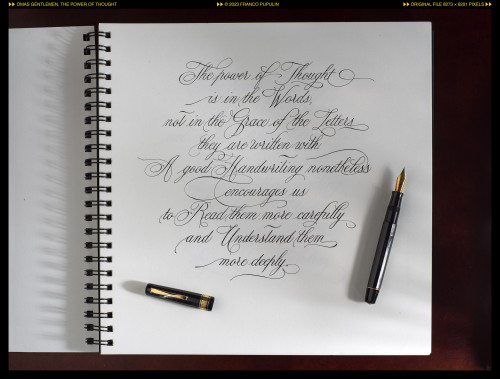 OMAS GENTLEMEN, THE POWER OF THOUGHT
© 2023 FRANCO PUPULIN
ORIGINAL FILE 8273 × 6201 PIXELS
The power of Thought
is in the Words,
not in the Grace of the Letters
they are written with.
A good Handwriting nonetheless
encourages us
to Read them more carefully
and Understand them
more deeply.